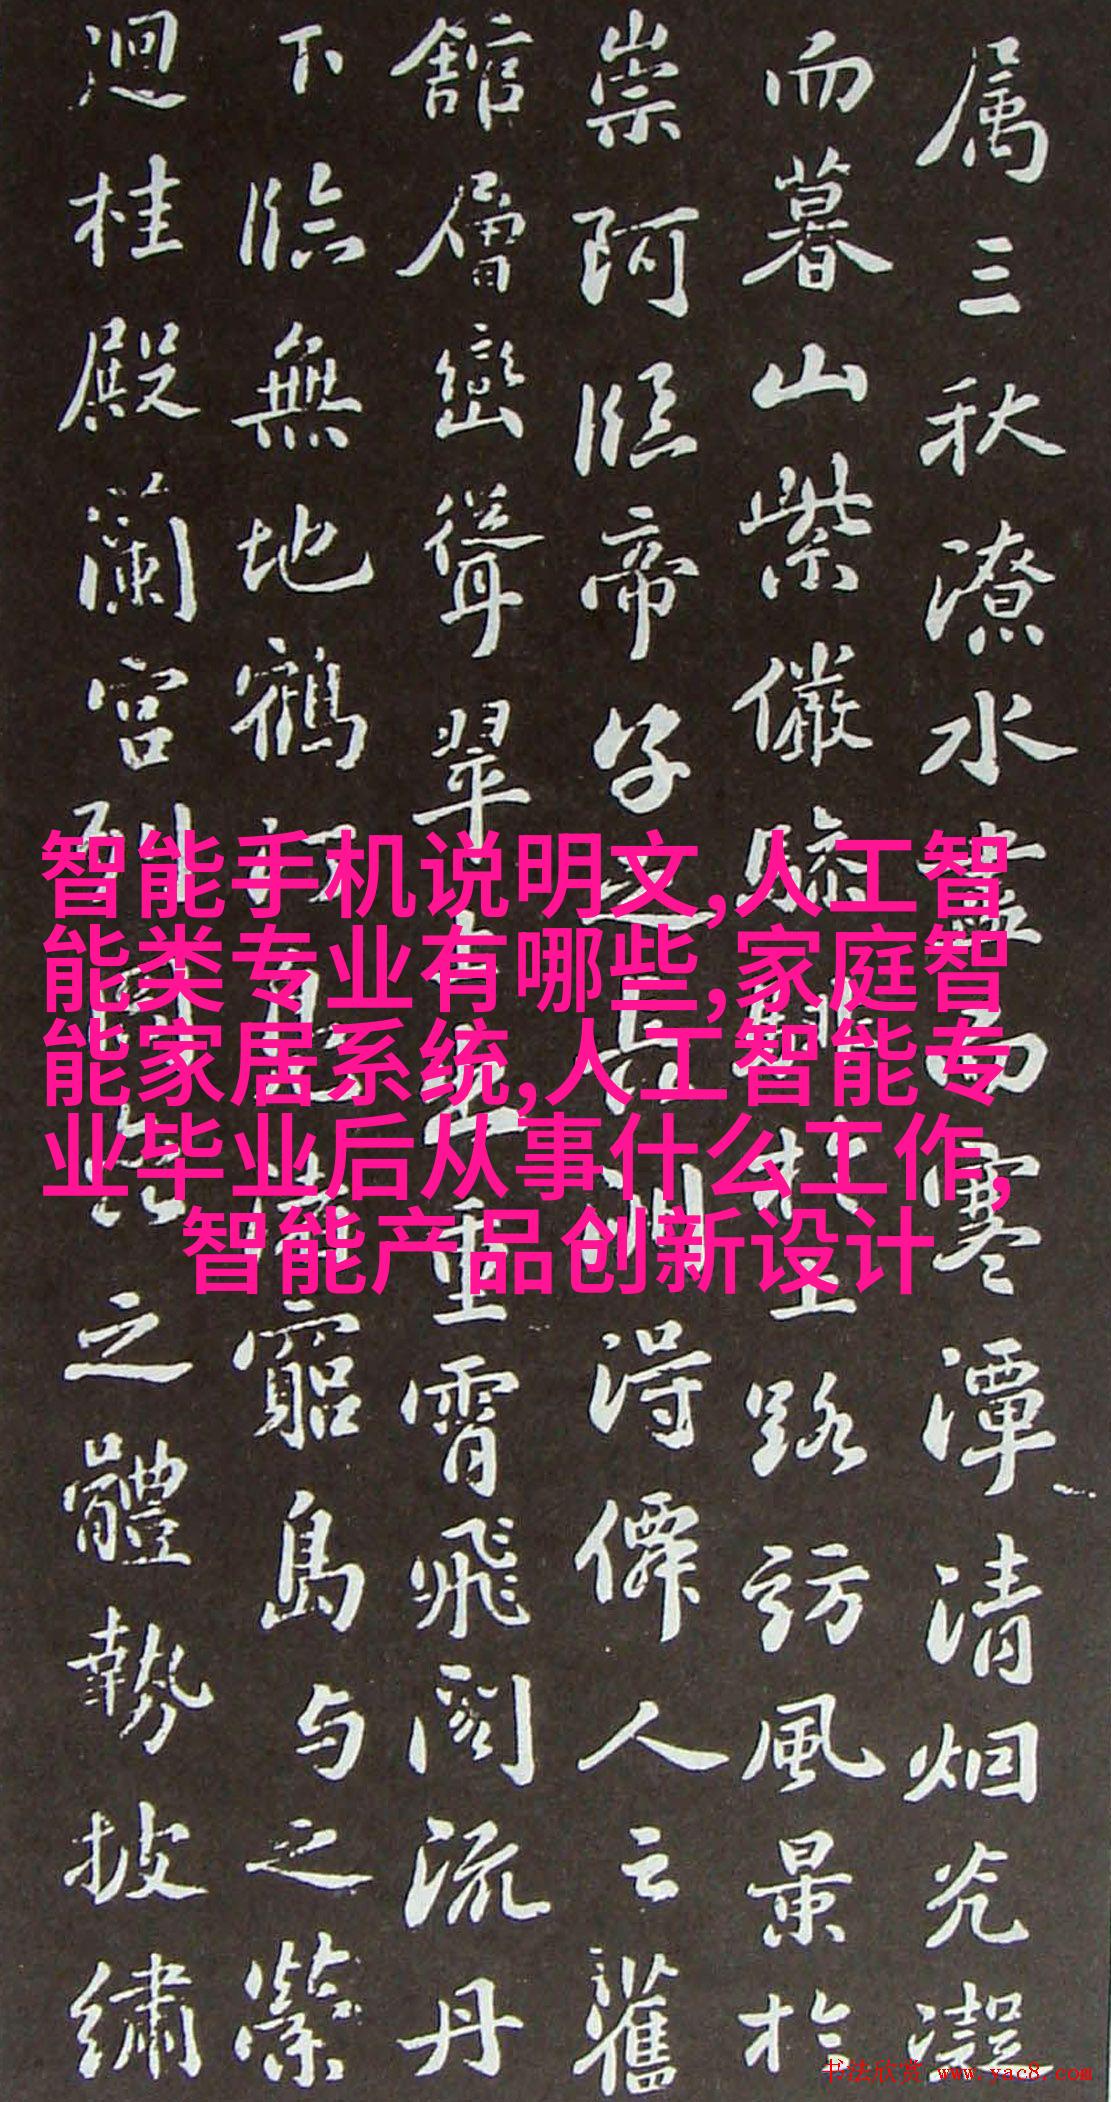 属三秋潦水盡而寒潭清烟光凝
而暮山紫儼驂騑於上路訪風景於
崇阿臨帝子之長洲得僊人之舊
館層巒聳翠上出重霄飛閣流丹
下臨無地鶴汀鳧渚窮島与之縈
迴桂殿蘭宮列岡巒之體勢披繡
智能手机说明文,人工智
能类专业有哪些,家庭智
能家居系统,人工智能专
业毕业后从事什么工作,
智能产品创新设计
书法欣赏 www.yac8.com